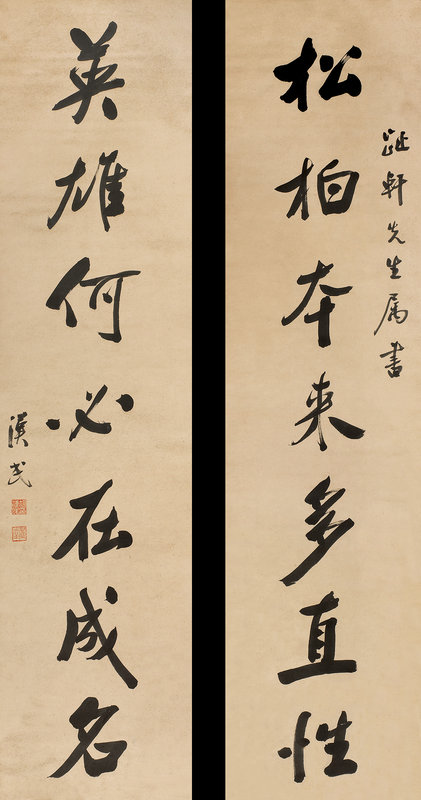 松柏本来多直性
跐軒先生属書
英雄何必在成名
漢民